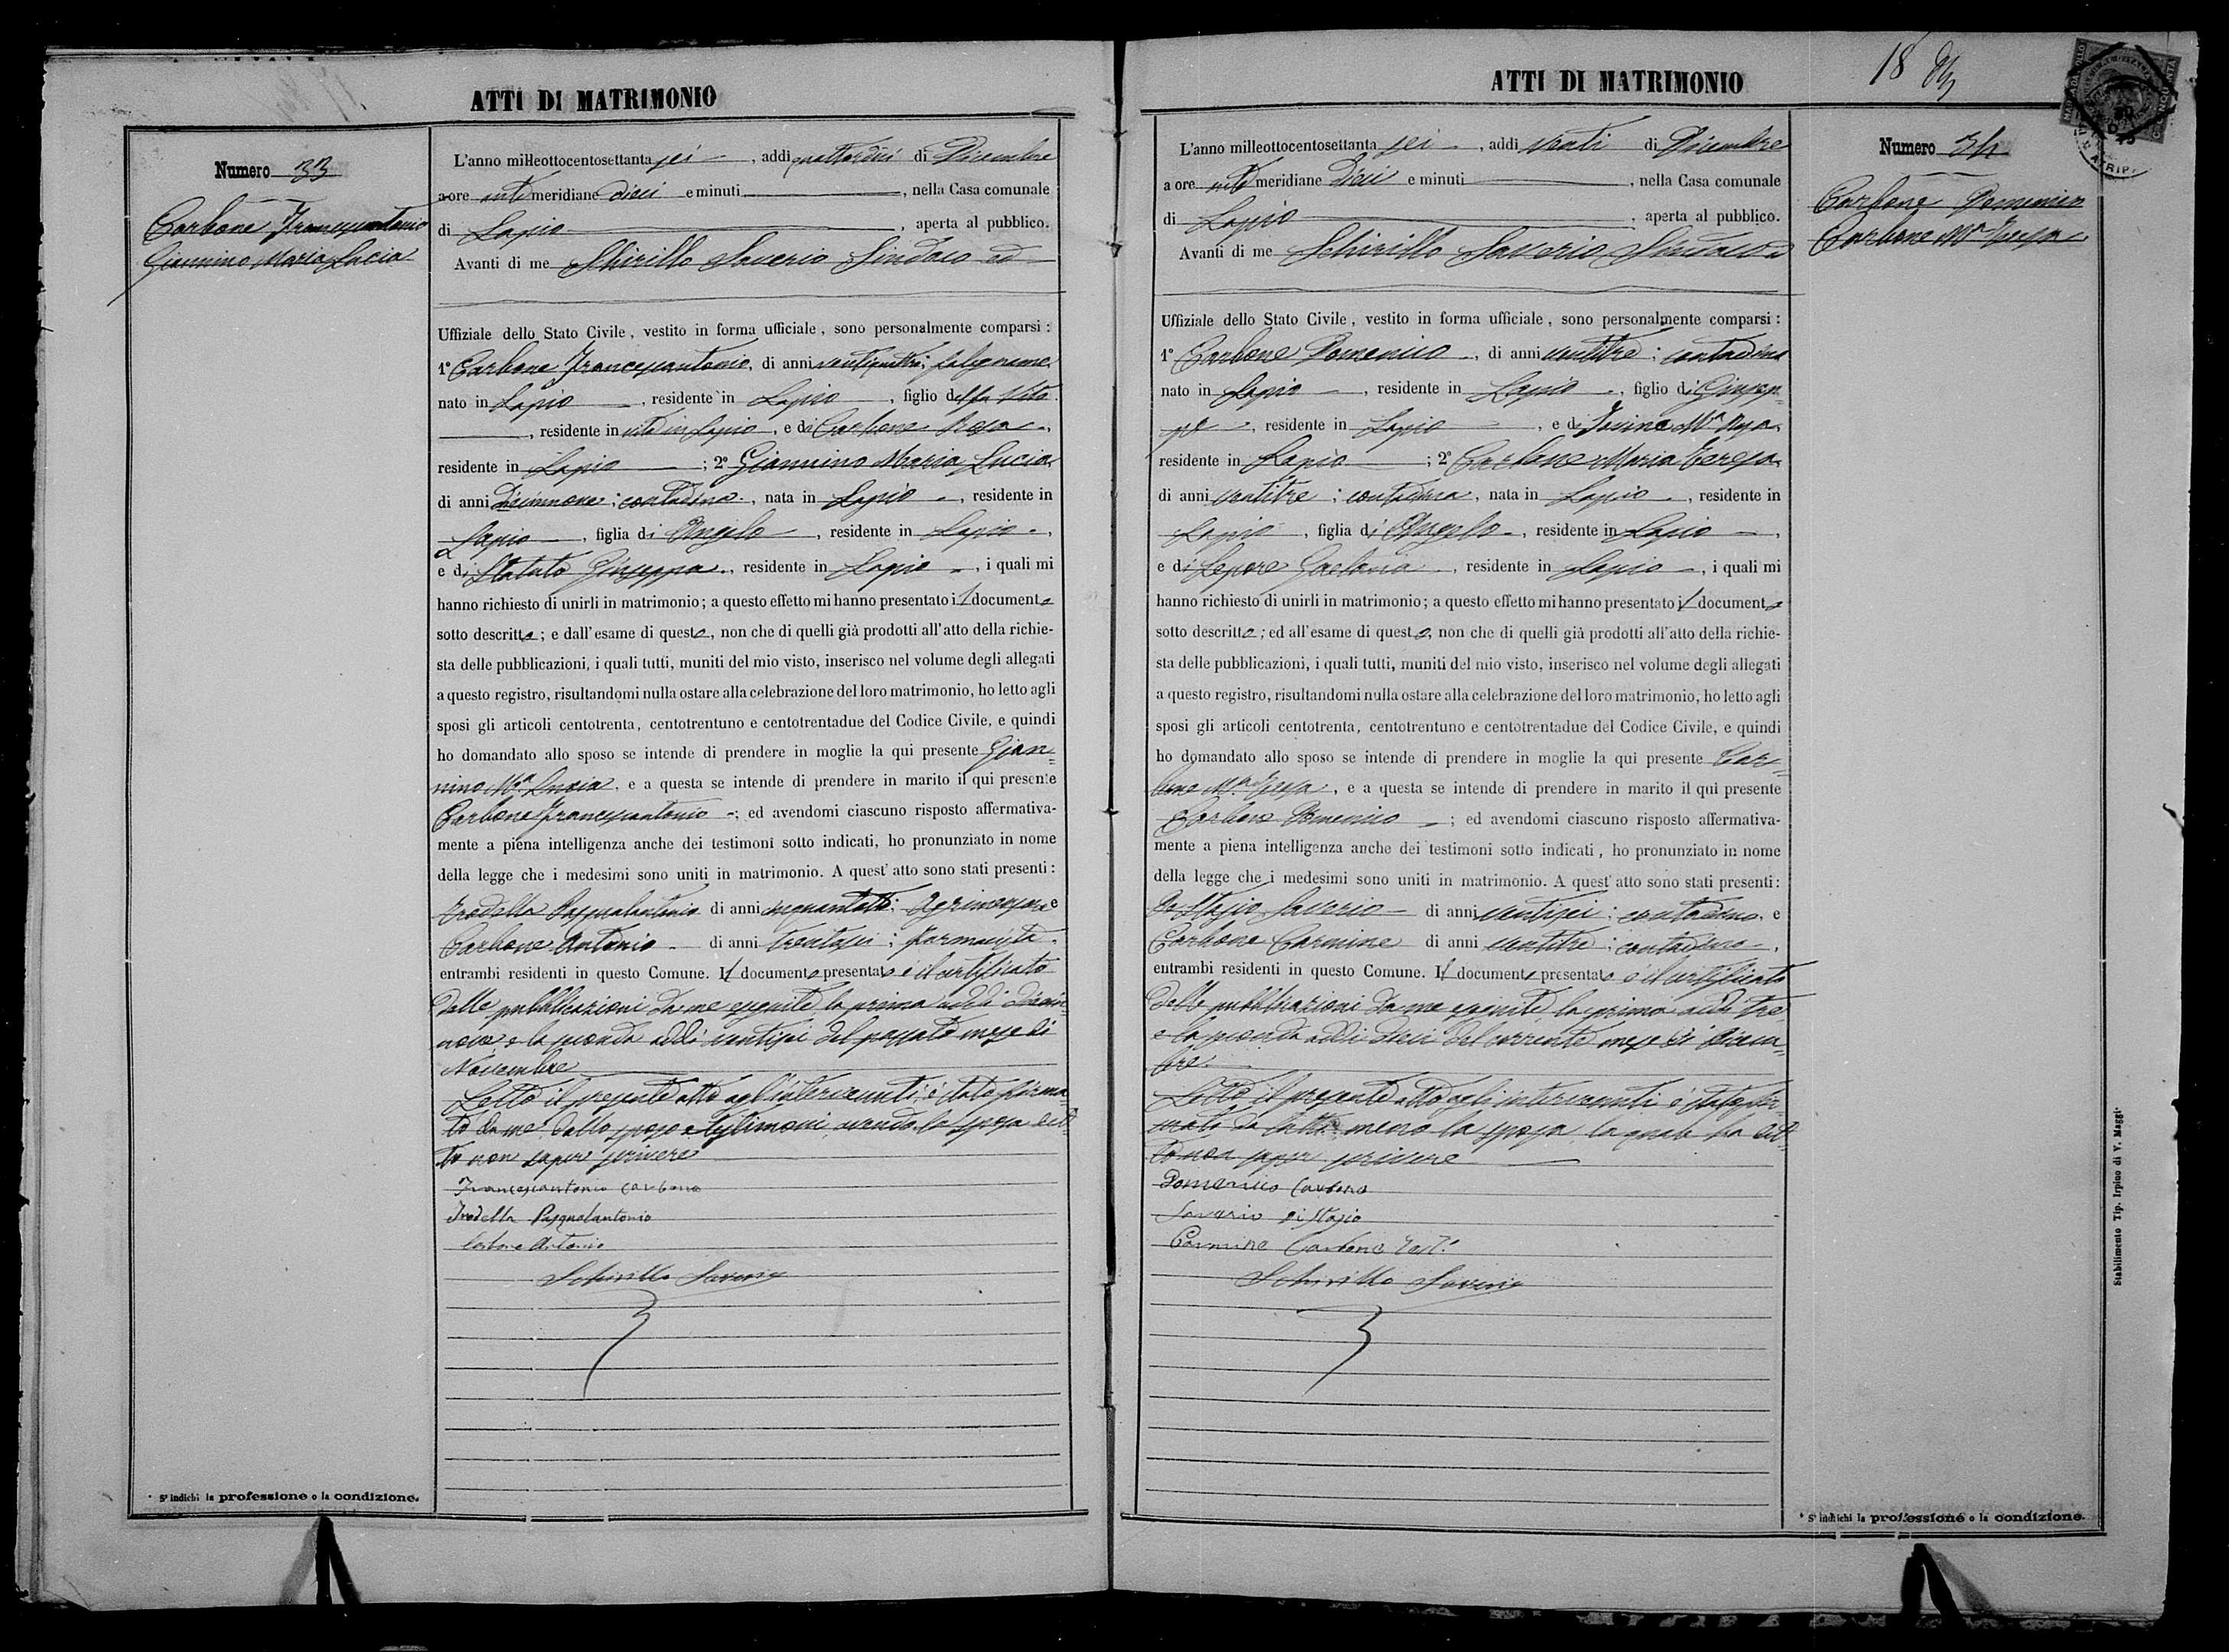 ATTI DI MATRIMONIO
Numero 33
Carbone Francescantonio
Giannino Maria Lucia
L'anno milleottocentosettanta sei, addì quattordici di Dicembre
a ore anti meridiane dieci e minuti, nella Casa comunale
di Lapio, aperta al pubblico.
Avanti di me Schirillo Saverio Sindaco ed
Uffiziale dello Stato Civile, vestito in forma ufficiale, sono personalmente comparsi:
1° Carbone Francescantonio, di anni ventiquattro; falegname
nato in Lapio, residente in Lapio, figlio del fu Vito
, residente in vita in Lapio, e di Carbone Rosa,
residente in Lapio; 2° Giannino Maria Lucia
di anni diciannove; contadina, nata in Lapio, residente in
Lapio, figlia di Angelo, residente in Lapio,
e di Statuto Giuseppa, residente in Lapio, i quali mi
hanno richiesto di unirli in matrimonio; a questo effetto mi hanno presentato il documento
sotto descritto; e dall'esame di questo, non che di quelli già prodotti all'atto della richie-
sta delle pubblicazioni, i quali tutti, muniti del mio visto, inserisco nel volume degli allegati
a questo registro, risultandomi nulla ostare alla celebrazione del loro matrimonio, ho letto agli
sposi gli articoli centotrenta, centotrentuno e centotrentadue del Codice Civile, e quindi
ho domandato allo sposo se intende di prendere in moglie la qui presente Gian=
nino Mª Lucia, e a questa se intende di prendere in marito il qui presente
Carbone Francescantonio; ed avendomi ciascuno risposto affermativa-
mente a piena intelligenza anche dei testimoni sotto indicati, ho pronunziato in nome
della legge che i medesimi sono uniti in matrimonio. A quest'atto sono stati presenti:
Pasqualantonio di anni cinquantotto; Agrimensore e
Carbone Antonio di anni trentasei; Farmacista,
entrambi residenti in questo Comune. Il documento presentato è il certificato
delle pubblicazioni da me eseguite la prima addì dician
nove e la seconda addì ventisei del passato mese di
Novembre
Letto il presente atto agl'intervenuti, è stato firma
to da me, dallo sposo e testimoni, avendo la sposa det=
to non saper scrivere
Francescantonio Carbone
Pasqualantonio
Carbone Antonio
Schirillo Saverio
* S'indichi la professione o la condizione.
ATTI DI MATRIMONIO
18
Numero 34
Carbone Domenico
Carbone Mª Teresa
L'anno milleottocentosettanta sei, addì venti di Dicembre
a ore anti meridiane dieci e minuti, nella Casa comunale
di Lapio, aperta al pubblico.
Avanti di me Schirillo Saverio Sindaco
Uffiziale dello Stato Civile, vestito in forma ufficiale, sono personalmente comparsi:
1° Carbone Domenico, di anni ventitre; contadino
nato in Lapio, residente in Lapio, figlio di Giusep=
pe, residente in Lapio, e di Iovino Mª Rosa
residente in Lapio; 2° Carbone Maria Teresa
di anni ventitre; contadina, nata in Lapio, residente in
Lapio, figlia di Angelo, residente in Lapio,
e di Lepore Gaetana, residente in Lapio, i quali mi
hanno richiesto di unirli in matrimonio; a questo effetto mi hanno presentato il documento
sotto descritto; ed all'esame di questo, non che di quelli già prodotti all'atto della richie-
sta delle pubblicazioni, i quali tutti, muniti del mio visto, inserisco nel volume degli allegati
a questo registro, risultandomi nulla ostare alla celebrazione del loro matrimonio, ho letto agli
sposi gli articoli centotrenta, centotrentuno e centotrentadue del Codice Civile, e quindi
ho domandato allo sposo se intende di prendere in moglie la qui presente Car=
bone Mª Teresa, e a questa se intende di prendere in marito il qui presente
Carbone Domenico; ed avendomi ciascuno risposto affermativa-
mente a piena intelligenza anche dei testimoni sotto indicati, ho pronunziato in nome
della legge che i medesimi sono uniti in matrimonio. A quest'atto sono stati presenti:
Di Stasio Saverio di anni ventisei; contadino, e
Carbone Carmine di anni ventitre; contadino,
entrambi residenti in questo Comune. Il documento presentato è il certificato
delle pubblicazioni da me eseguite la prima addì tre
e la seconda addì dieci del corrente mese di Dicem=
bre.
Letto il presente atto agli intervenuti è stato fir=
mato da tutti meno la sposa la quale ha det=
to non saper scrivere
Domenico Carbone
Saverio di Stasio
Carmine Carbone Test.º
Schirillo Saverio
* S'indichi la professione o la condizione.
Stabilimento Tip. Irpino di V. Maggi